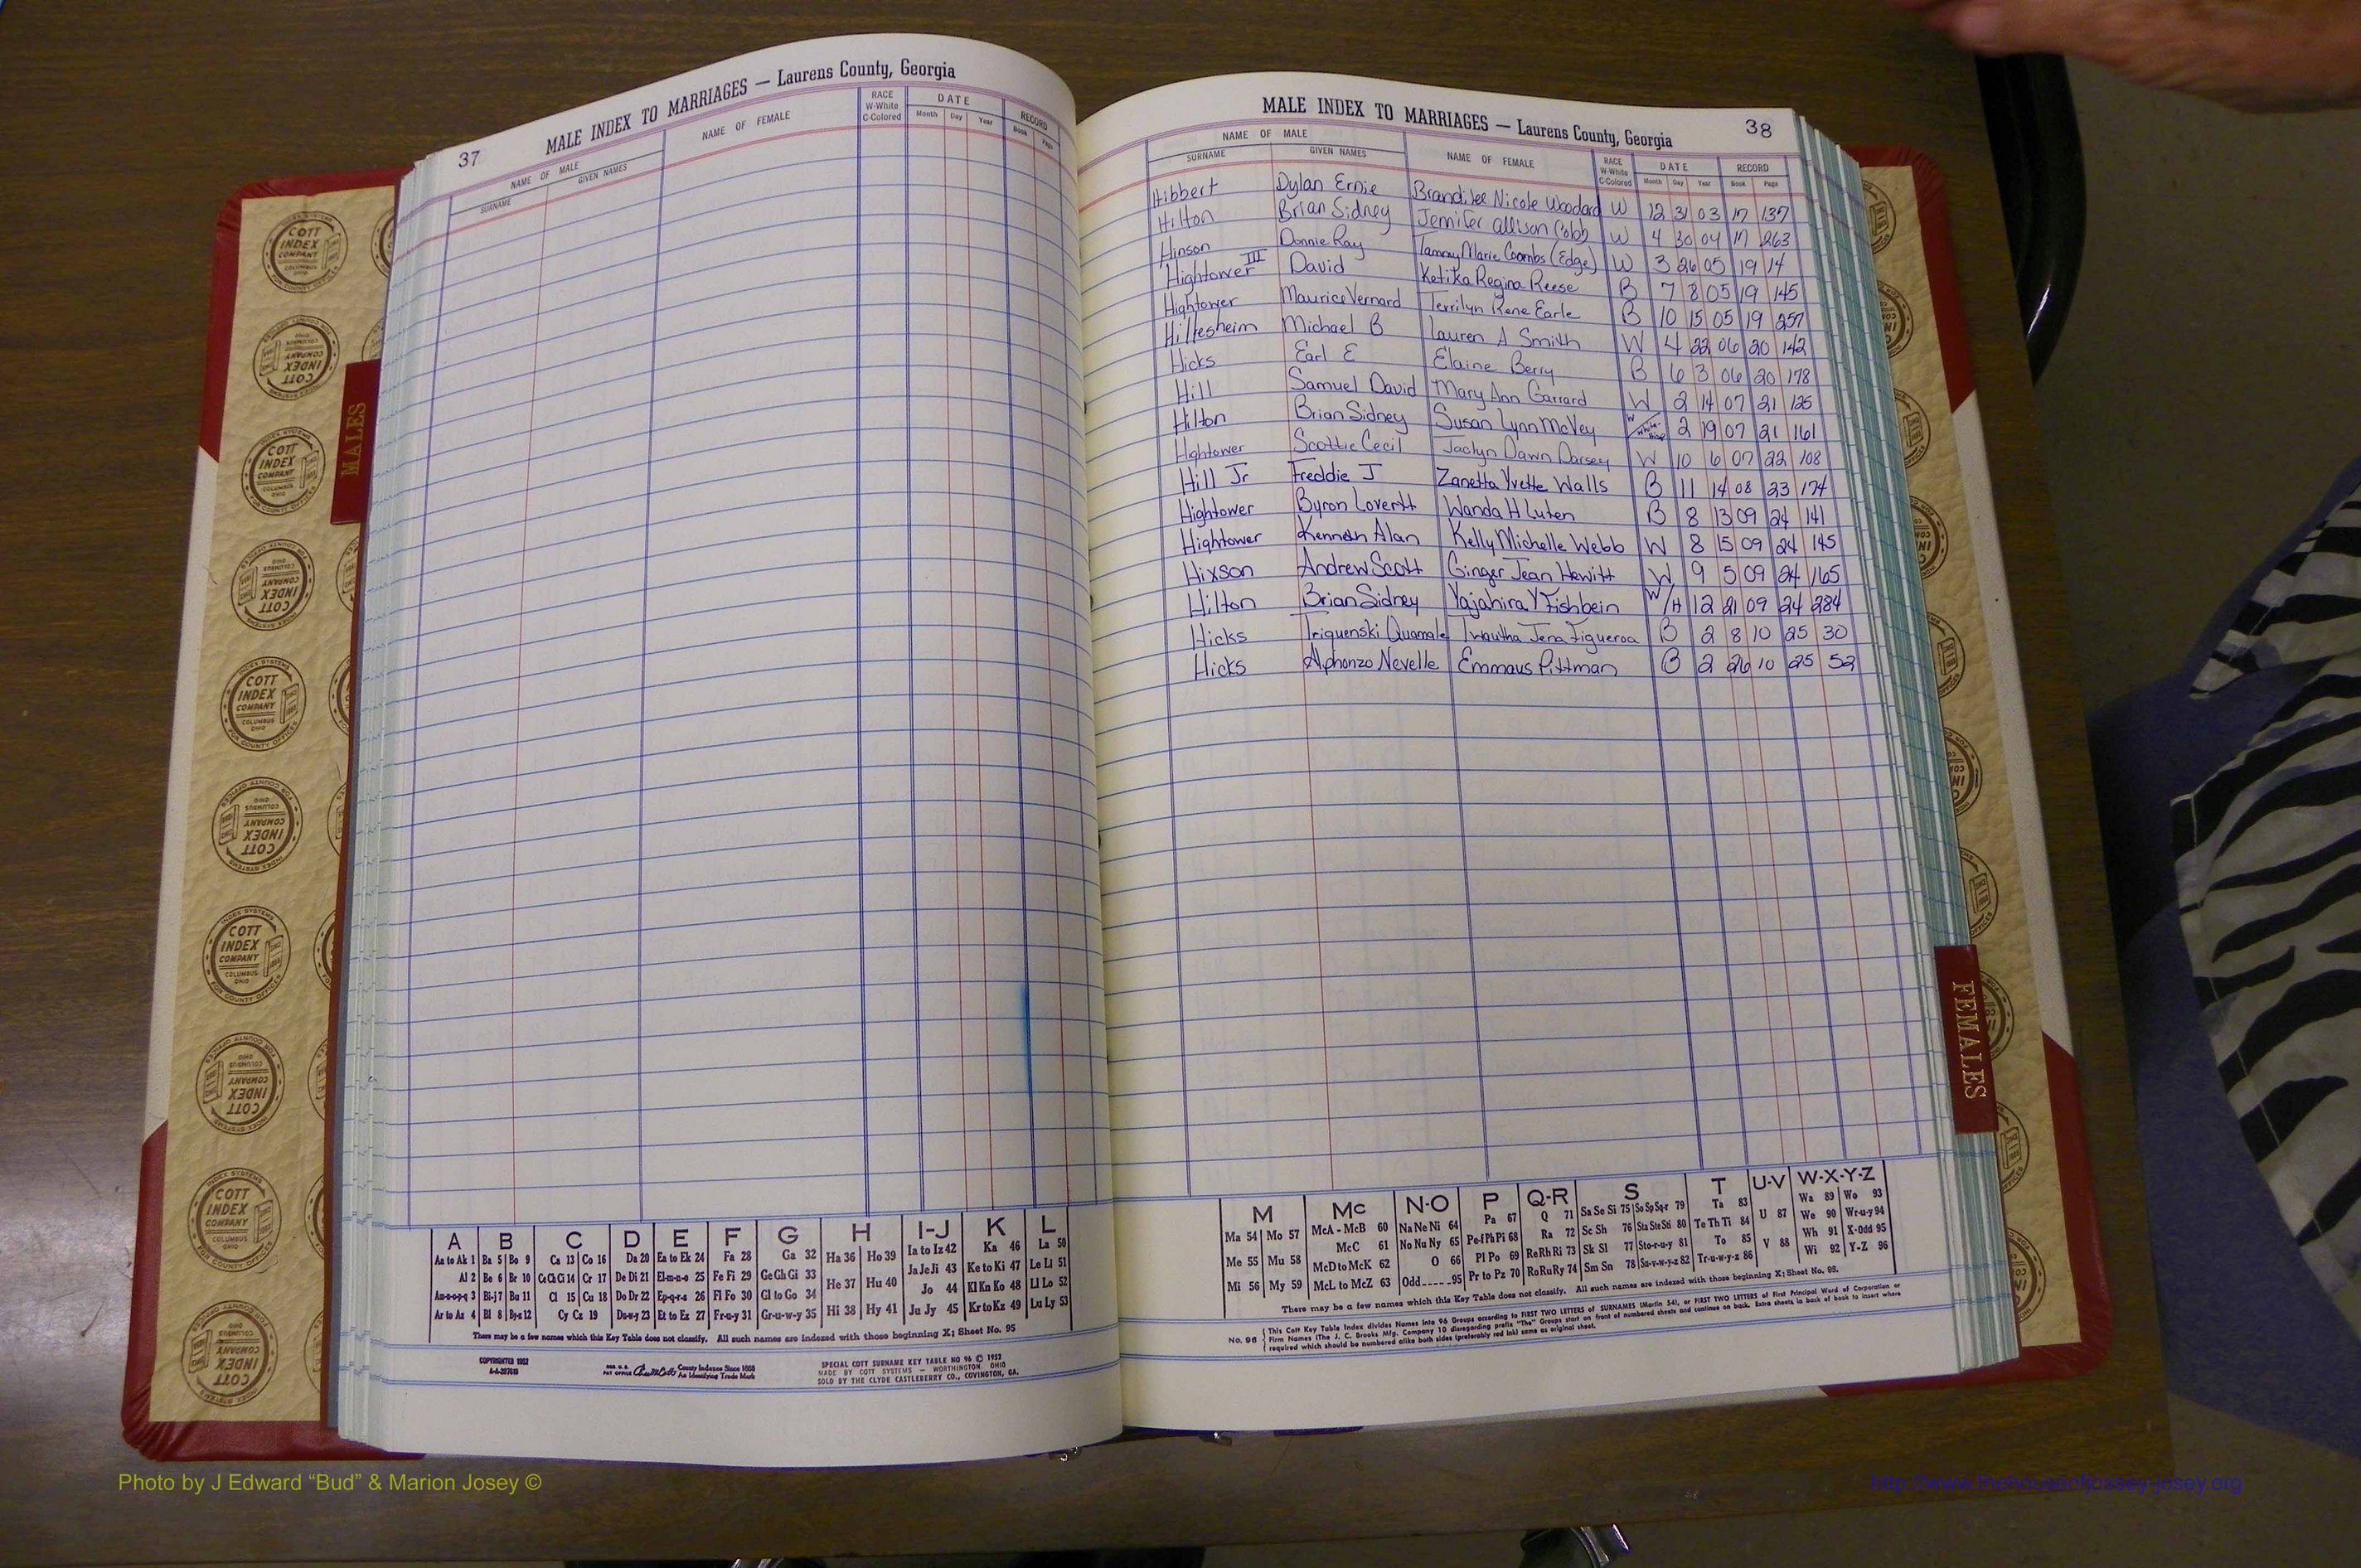 37
MALE INDEX TO MARRIAGES — Laurens County, Georgia
NAME OF MALE
SURNAME GIVEN NAMES
NAME OF FEMALE
RACE
W-White
C-Colored
DATE
Month Day Year
RECORD
Book Page
MALE INDEX TO MARRIAGES — Laurens County, Georgia
38
NAME OF MALE
SURNAME GIVEN NAMES
NAME OF FEMALE
RACE
W-White
C-Colored
DATE
Month Day Year
RECORD
Book Page
Hibbert Dylan Ernie Brandilee Nicole Woodard W 12 31 03 17 137
Hilton Brian Sidney Jennifer allison Cobb W 4 30 04 17 263
Hinson Donnie Ray Tammy Marie Coombs (Edge) W 3 26 05 19 14
Hightower III David Ketika Regina Reese B 7 8 05 19 145
Hightower Maurice Vernard Terrilyn Rene Earle B 10 15 05 19 257
Hillesheim Michael B Lauren A Smith W 4 22 06 20 142
Hicks Earl E Elaine Berry B 6 3 06 20 178
Hill Samuel David Mary Ann Garrard W 2 14 07 21 125
Hilton Brian Sidney Susan Lynn McVey W 2 19 07 21 161
Hightower Scottie Cecil Jaclyn Dawn Darsey W 10 6 07 22 108
Hill Jr Freddie J Zanetta Yvette Walls B 11 14 08 23 174
Hightower Byron Lovertt Wanda H Luten B 8 13 09 24 141
Hightower Kenneth Alan Kelly Michelle Webb W 8 15 09 24 145
Hixson Andrew Scott Ginger Jean Hewitt W 9 5 09 24 165
Hilton Brian Sidney Yajahira Y Fishbein W/H 12 21 09 24 284
Hicks Triquenski Quamale Jena Figueroa B 2 8 10 25 30
Hicks Alphonzo Nevelle Emmaus Pittman B 2 26 10 25 52
MALES
FEMALES
COTT INDEX COMPANY
COLUMBUS OHIO
INDEX SYSTEMS
FOR COUNTY OFFICES
A B C D E F G H I-J K L
Aa to Ak 1 Ba 5 Bo 9 Ca 13 Co 16 Da 20 Ea to Ek 24 Fa 28 Ga 32 Ha 36 Ho 39 Ia to Iz 42 Ka 46 La 50
Al 2 Be 6 Br 10 Ce Ch Ci 14 Cr 17 De Di 21 El-m-n-o 25 Fe Fi 29 Ge Gh Gi 33 He 37 Hu 40 Ja Je Ji 43 Ke to Ki 47 Le Li 51
Am-n-o-p-q 3 Bi-j 7 Bu 11 Cl 15 Cu 18 Do Dr 22 Ep-q-r-s 26 Fl Fo 30 Gl to Go 34 Hi 38 Hy 41 Jo 44 Kl Kn Ko 48 Ll Lo 52
Ar to Az 4 Bl 8 By-z 12 Cy Cz 19 Du-w-y 23 Et to Ez 27 Fr-u-y 31 Gr-u-w-y 35 Ju Jy 45 Kr to Kz 49 Lu Ly 53
There may be a few names which this Key Table does not classify. All such names are indexed with those beginning X; Sheet No. 95
COPYRIGHTED 1952
County Indexes Since 1888
An Identifying Trade Mark
SPECIAL COTT SURNAME KEY TABLE NO 96 © 1952
MADE BY COTT SYSTEMS — WORTHINGTON, OHIO
SOLD BY THE CLYDE CASTLEBERRY CO., COVINGTON, GA.
M Mc N-O P Q-R S T U-V W-X-Y-Z
Ma 54 Mo 57 McA - McB 60 Na Ne Ni 64 Pa 67 Q 71 Sa Se Si 75 So Sp Sq-r 79 Ta 83 U 87 Wa 89 Wo 93
Me 55 Mu 58 McC 61 No Nu Ny 65 Pe-f Ph Pi 68 Ra 72 Sc Sh 76 Sta Ste Sti 80 Te Th Ti 84 V 88 We 90 Wr-u-y 94
Mi 56 My 59 McD to McK 62 O 66 Pl Po 69 Re Rh Ri 73 Sk Sl 77 Sto-r-u-y 81 To 85 Wh 91 X-Odd 95
McL to McZ 63 Odd 95 Pr to Pz 70 Ro Ru Ry 74 Sm Sn 78 Su-v-w-y-z 82 Tr-u-w-y-z 86 Wi 92 Y-Z 96
There may be a few names which this Key Table does not classify. All such names are indexed with those beginning X; Sheet No. 95.
No. 96
This Cott Key Table Index divides Names into 96 Groups according to FIRST TWO LETTERS of SURNAMES (Martin 54), or FIRST TWO LETTERS of First Principal Word of Corporation or
Firm Names (The J. C. Brooks Mfg. Company 10 disregarding prefix "The" Groups start on front of numbered sheets and continue on back. Extra sheets in back of book to insert where
required which should be numbered alike both sides (preferably red ink) same as original sheet.
Photo by J Edward “Bud” & Marion Josey ©
http://www.thehouseofjossey-josey.org